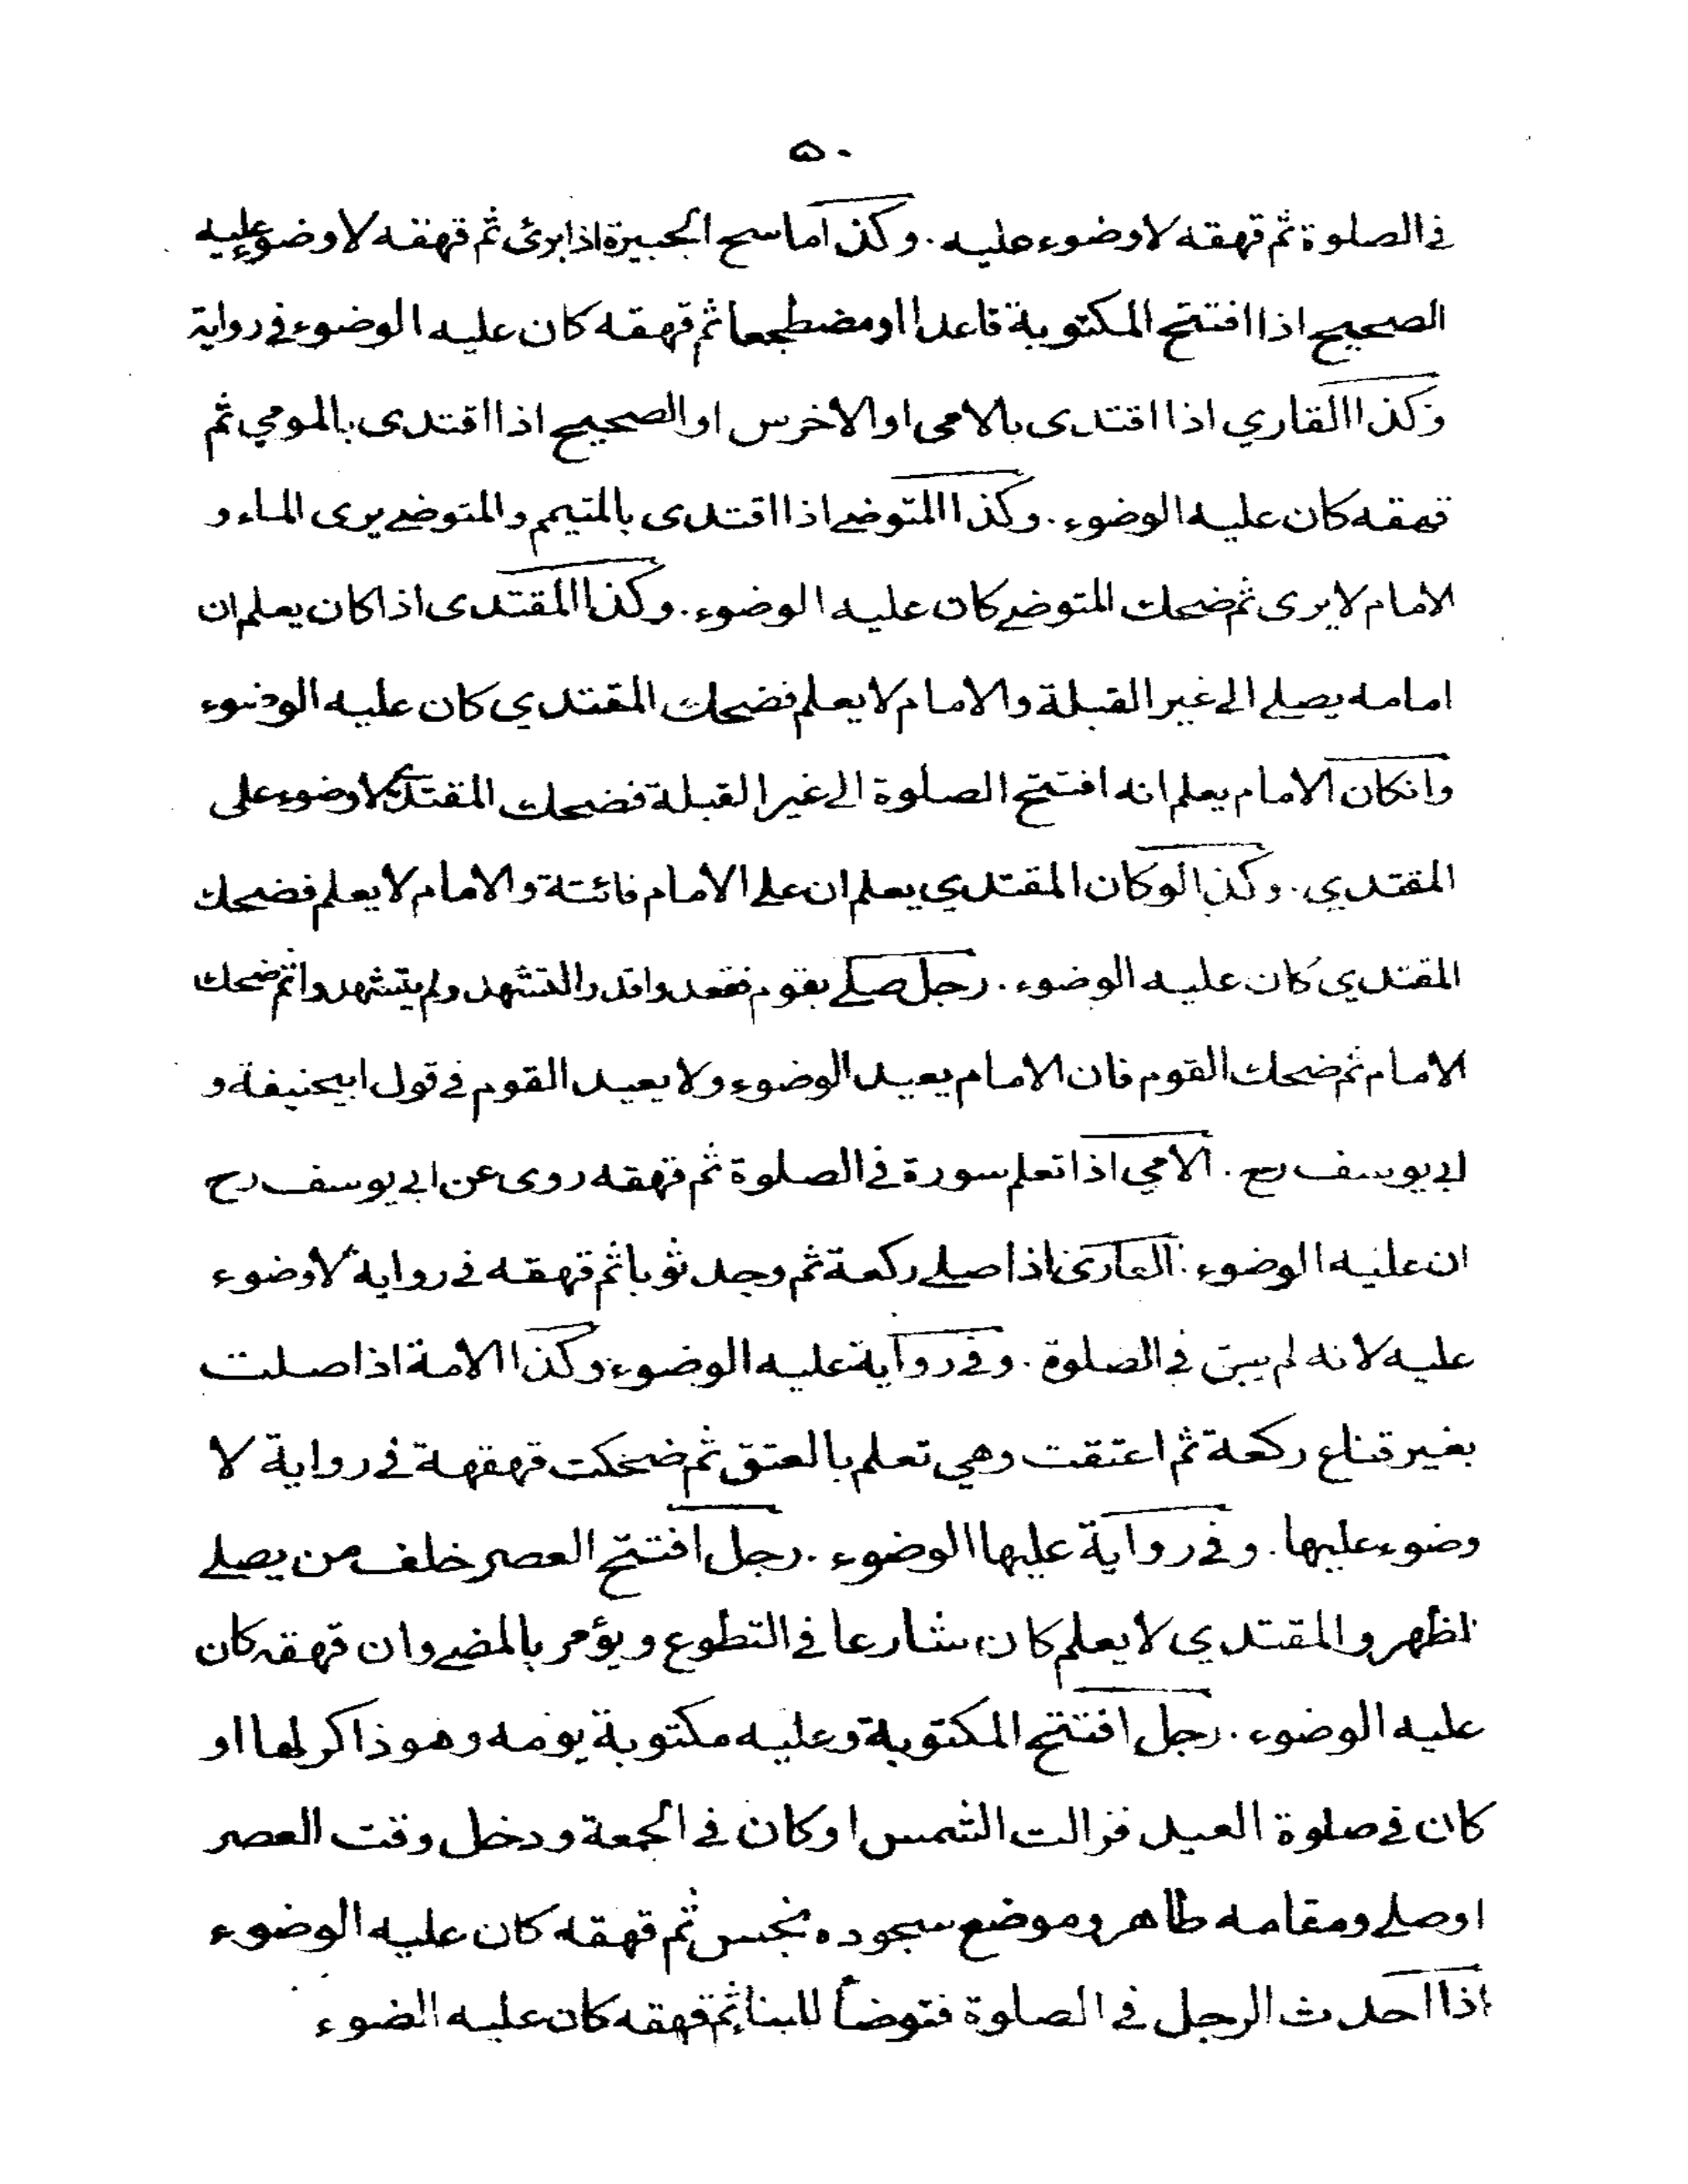 ۵۰
في الصلوة ثم قهقه لا وضوء عليه . وكذا ماسح الجبيرة اذا برئ ثم قهقه لا وضوء عليه
الصحيح اذا افتتح المكتوبة قاعدا او مضطجعا ثم قهقه كان عليه الوضوء في رواية
وكذا القاري اذا اقتدى بالامي او الاخرس او الصحيح اذا اقتدى بالمومي ثم
قهقه كان عليه الوضوء . وكذا المتوضي اذا اقتدى بالمتيمم والمتوضي يرى الماء و
الامام لا يرى ثم ضحك المتوضي كان عليه الوضوء . وكذا المقتدى اذا كان يعلم ان
امامه يصلي الى غير القبلة والامام لا يعلم فضحك المقتدي كان عليه الوضوء
وانكان الامام يعلم انه افتتح الصلوة الى غير القبلة فضحك المقتدي لا وضوء على
المقتدي . وكذا لو كان المقتدي يعلم ان على الامام فائتة والامام لا يعلم فضحك
المقتدي كان عليه الوضوء . رجل صلى بقوم فقعدوا قدر التشهد ولم يتشهدوا ثم ضحك
الامام ثم ضحك القوم فان الامام يعيد الوضوء ولا يعيد القوم في قول ابيحنيفة و
ابي يوسف رح . الامي اذا تعلم سورة في الصلوة ثم قهقه روى عن ابي يوسف رح
ان عليه الوضوء . العاري اذا صلى ركعة ثم وجد ثوبا ثم قهقه في رواية لا وضوء
عليه لانه لم يبق في الصلوة . وفي رواية عليه الوضوء وكذا الامة اذا صلت
بغير قناع ركعة ثم اعتقت وهي تعلم بالعتق ثم ضحكت قهقهة في رواية لا
وضوء عليها . وفي رواية عليها الوضوء . رجل افتتح العصر خلف من يصلي
الظهر والمقتدي لا يعلم كان شارعا في التطوع ويؤمر بالمضي وان قهقه كان
عليه الوضوء . رجل افتتح المكتوبة وعليه مكتوبة يومه وهو ذاكر لها او
كان في صلوة العيد فزالت الشمس او كان في الجمعة ودخل وقت العصر
او صلى ومقامه طاهر وموضع سجوده نجس ثم قهقه كان عليه الوضوء
اذا احدث الرجل في الصلوة فتوضأ للبناء ثم قهقه كان عليه الضوء